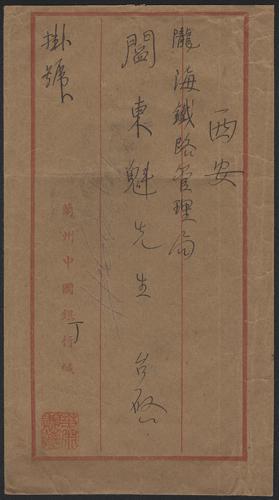 西安
隴海鐵路管理局
閻東魁先生 台啟
掛號
蘭州中國銀行緘
丁